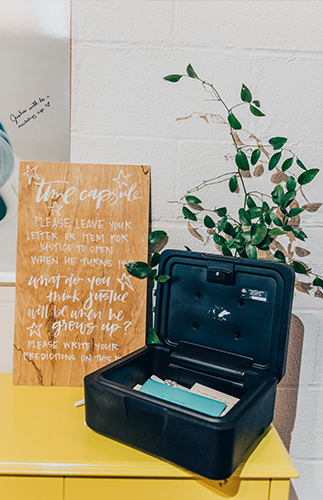 Time capsule
PLEASE LEAVE YOUR
LETTER OR ITEM FOR
JUSTICE TO OPEN
WHEN HE TURNS
what do you
think Justice
will be when he
grows up?
PLEASE WRITE YOUR
PREDICTIONS ON THIS
Justice will be